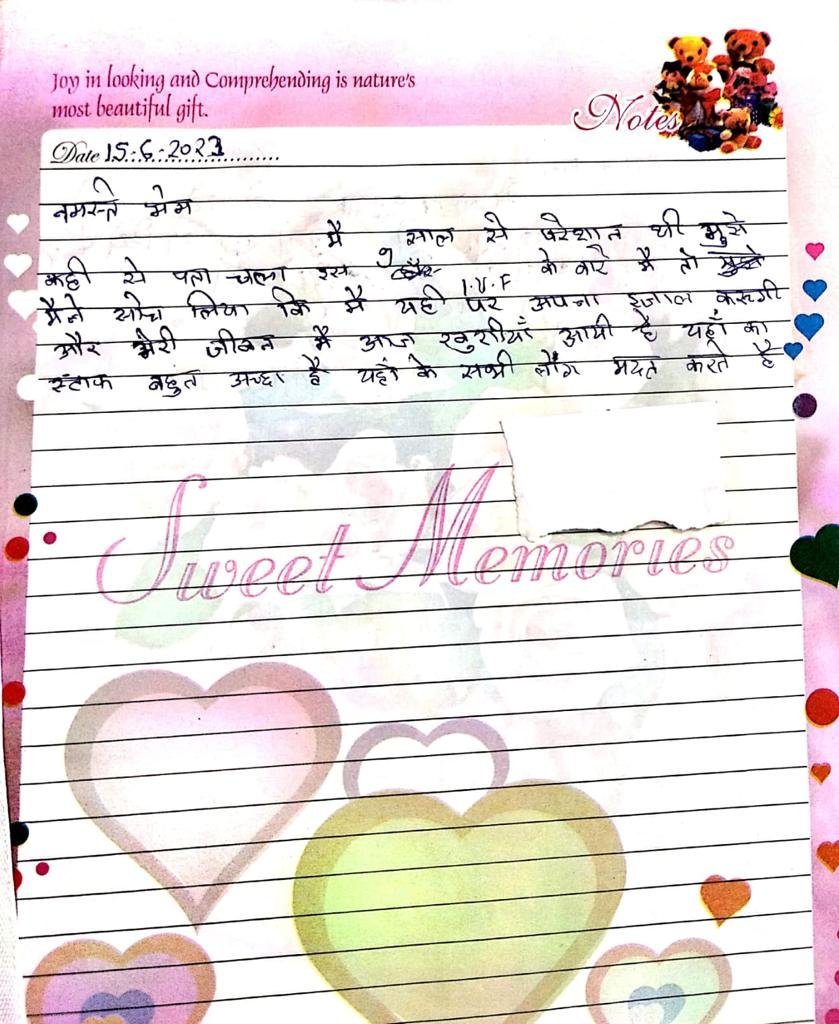 Joy in looking and Comprehending is nature's
most beautiful gift.
Notes
Date 15.6.2023
नमस्ते मेम
मै 9 साल से परेशान थी मुझे
कही से पता चला इस I.V.F के बारे मै तो
मैने सोच लिया कि मै यही पर अपना इजाल करूगी
और मेरी जीवन मै आज खुशीयाँ आयी है यहाँ का
स्टाफ बहुत अच्छा है यहाँ के सभी लोंग मदत करते है
Sweet Memories